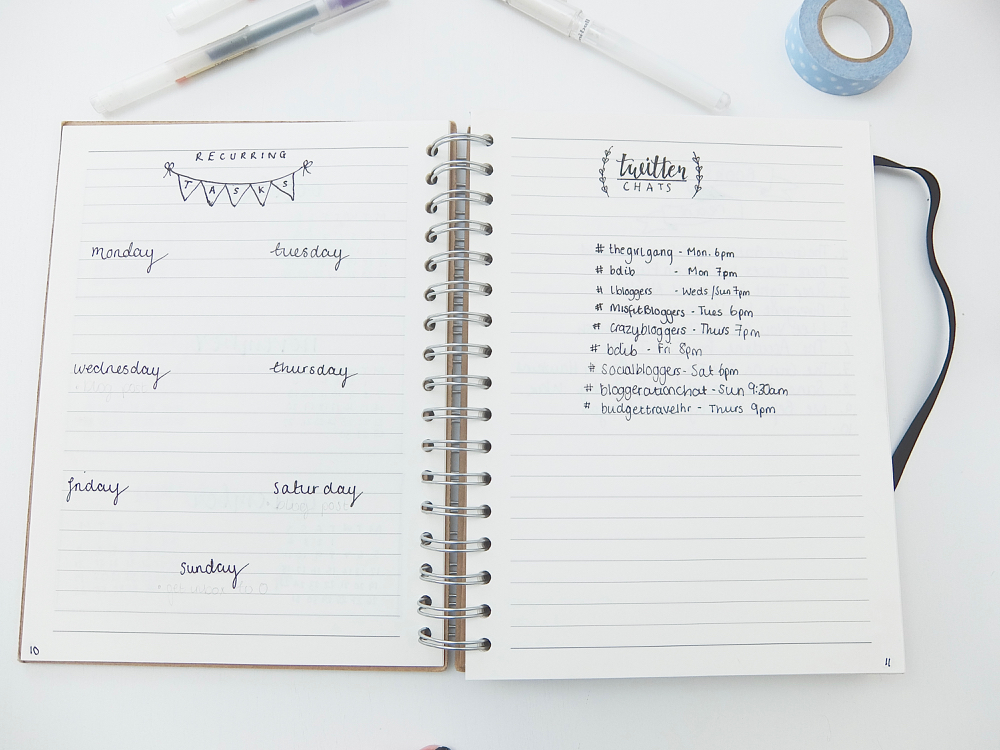 RECURRING
TASKS
monday
tuesday
wednesday
thursday
friday
saturday
sunday
10
twitter
CHATS
# thegirlgang - Mon. 6pm
# bdib - Mon 7pm
# lbloggers - Weds/Sun 7pm
# MisfitBloggers - Tues 6pm
# crazybloggers - Thurs 7pm
# bdib - Fri 8pm
# socialbloggers - Sat 6pm
# bloggerationchat - Sun 9:30am
# budgettravelhr - Thurs 9pm
11